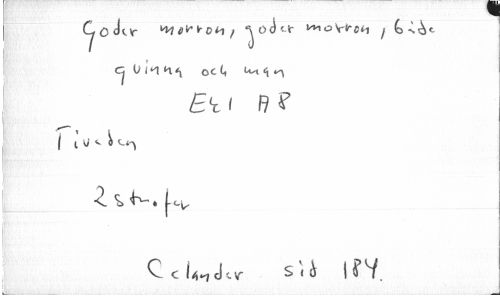 Goder morron, goder morron, både
quinna och man
Ek1 A8
Tiveden
2 strofer
Celander sid 184.